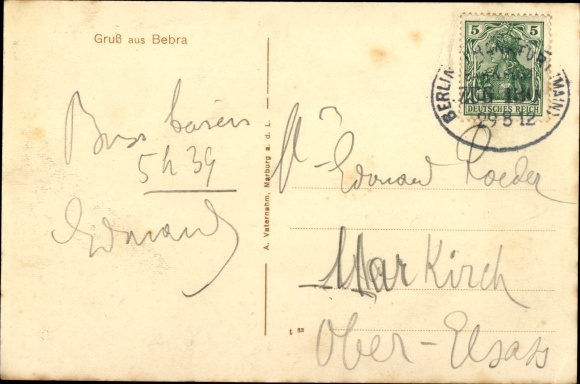 Gruß aus Bebra
Bons baisers
5h39
Edmond
A. Vaternahm, Marburg a. d. L.
5
DEUTSCHES REICH
BERLIN FRANKFURT (MAIN)
ZUG
29 8 12
Mr Edouard Roeder
Markirch
Ober-Elsass